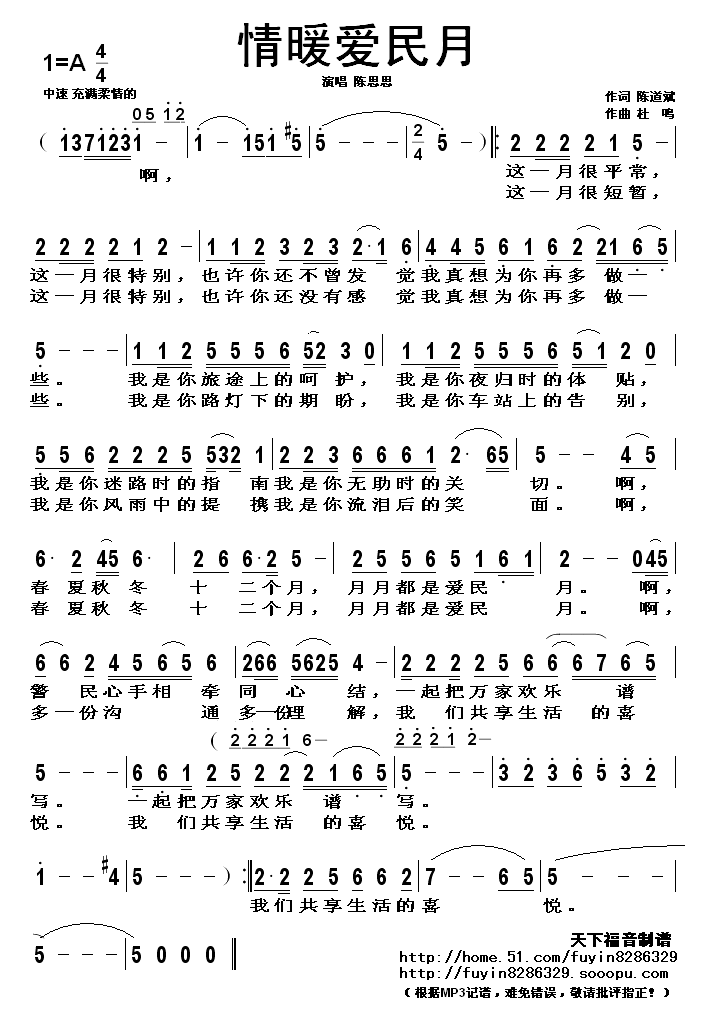 情暖爱民月
1=A 4/4
演唱 陈思思
中速 充满柔情的
作词 陈道斌
作曲 杜 鸣
0 5 1 2
( 1371231 - 1 - 151#5 5 - - - 2/4 5 - ) 2 2 2 2 1 5 -
啊, 这一月很平常,
这一月很短暂,
2 2 2 2 1 2 - 1 1 2 3 2 3 2·1 6 4 4 5 6 1 6 2 21 6 5
这一月很特别, 也许你还不曾发 觉我真想为你再多 做一
这一月很特别, 也许你还没有感 觉我真想为你再多 做一
5 - - - 1 1 2 5 5 5 6 52 3 0 1 1 2 5 5 5 6 5 1 2 0
些。 我是你旅途上的呵 护, 我是你夜归时的体 贴,
些。 我是你路灯下的期 盼, 我是你车站上的告 别,
5 5 6 2 2 2 5 532 1 2 2 3 6 6 6 1 2· 65 5 - - 4 5
我是你迷路时的指 南我是你无助时的关 切。 啊,
我是你风雨中的提 携我是你流泪后的笑 面。 啊,
6· 2 45 6· 2 6 6·2 5 - 2 5 5 6 5 1 6 1 2 - - 045
春 夏秋 冬 十 二个月, 月月都是爱民 月。 啊,
春 夏秋 冬 十 二个月, 月月都是爱民 月。 啊,
6 6 2 4 5 6 5 6 266 5625 4 - 2 2 2 5 6 6 7 6 5
警 民心手相 牵 同 心 结, 一起把万家欢乐 谱
多一份沟 通 多一份理 解, 我 们共享生活 的喜
( 2 2 2 1 6 - 2 2 2 1 2 -
5 - - - 6 6 1 2 5 2 2 2 1 6 5 5 - - - 3 2 3 6 5 3 2
写。 一起把万家欢乐 谱 写。
悦。 我 们共享生活 的喜 悦。
1 - - #4 5 - - - ) 2·2 2 5 6 6 2 7 - - 6 5 5 - - -
我们共享生活的喜 悦。
5 - - - 5 0 0 0
天下福音制谱
http://home.51.com/fuyin8286329
http://fuyin8286329.sooopu.com
(根据MP3记谱，难免错误，敬请批评指正！)